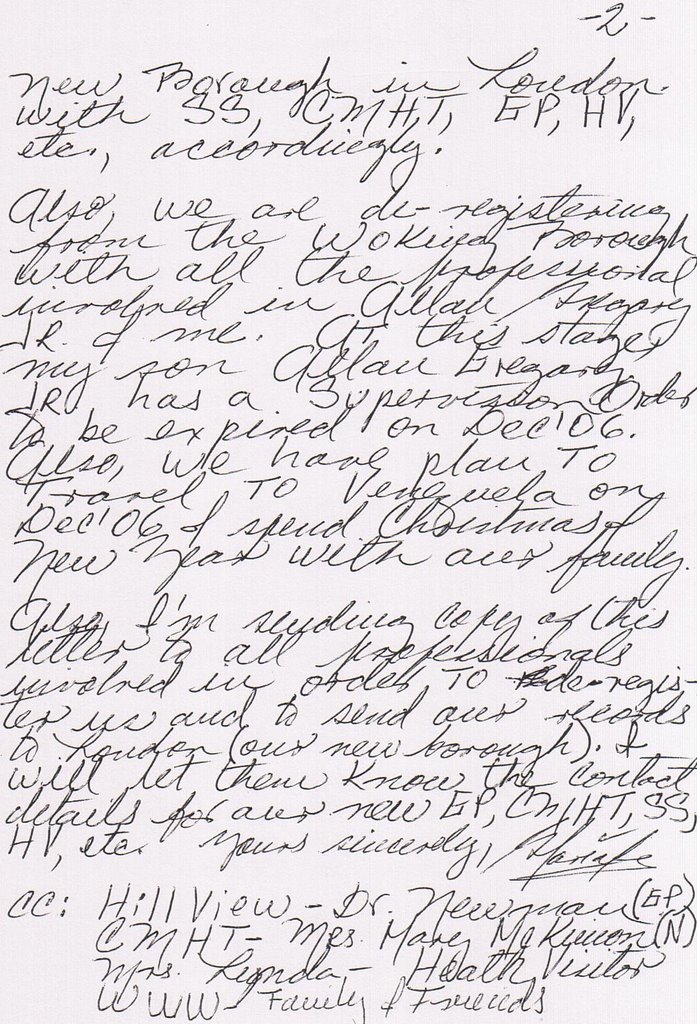 -2-
New Borough in London.
with SS, CMHT, GP, HV,
etc., accordingly.
Also, we are de-registering
from the Woking Borough
with all the professional
involved in Allan Gregory
JR. & me. At this stage,
my son Allan Gregory
JR. has a Supervision Order
to be expired on Dec'06.
Also, we have plan to
Travel to Venezuela on
Dec'06 & spend Christmas &
New Year with our family.
Also, I'm sending copy of this
letter to all professionals
involved in order to de-regis-
ter us and to send our records
to London (our new borough). I
will let them know the contact
details for our new GP, CMHT, SS,
HV, etc. Yours sincerely,
cc: Hill View - Dr. Newman (GP)
CMHT - Mrs. Mary McKinnon (N)
Mrs. Lynda - Health Visitor
WWW - Family & Friends